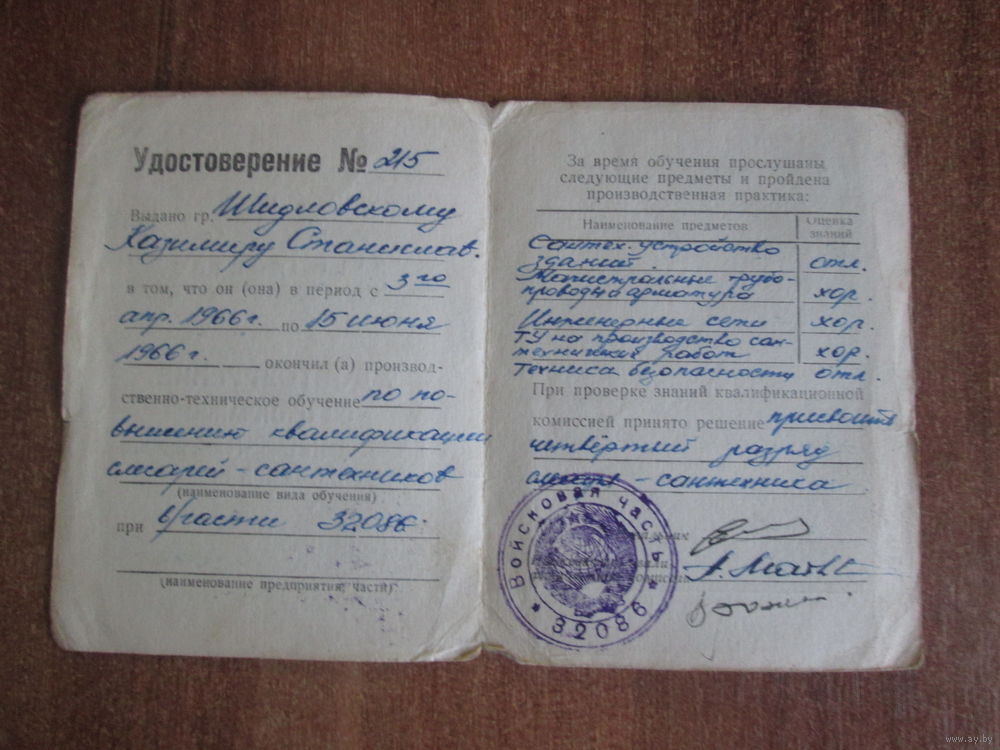 Удостоверение № 215
Выдано гр. Шидловскому
Казимиру Станислав.
в том, что он (она) в период с 3го
апр. 1966г. по 15 июня
1966г. окончил (а) производ-
ственно-техническое обучение по по-
вышению квалификации
слесарей-сантехников
(наименование вида обучения)
при в/части 32086.
(наименование предприятия, части)
За время обучения прослушаны
следующие предметы и пройдена
производственная практика:
Наименование предметов Оценка знаний
Сантех. устройство
зданий. отл.
Магистральные трубо-
проводы и арматура хор.
Инженерные сети хор.
ТУ на производство сан-
технических работ хор.
Техника безопасности отл.
При проверке знаний квалификационной
комиссией принято решение присвоить
четвёртый разряд
слесаря-сантехника
Войсковая часть
* 32086 *
www.ay.by